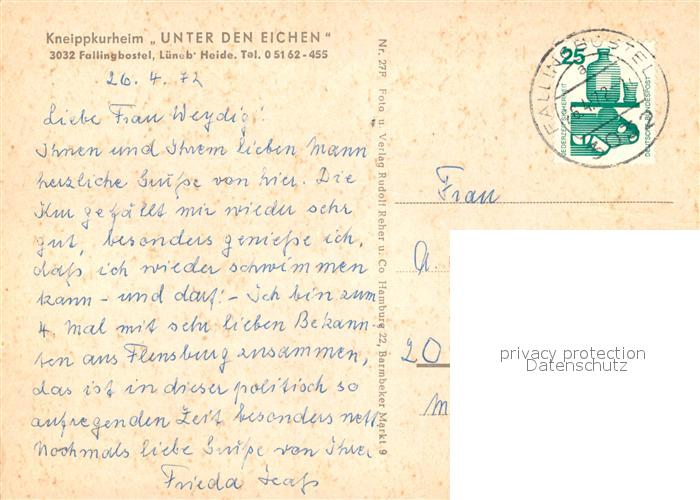 Kneippkurheim „UNTER DEN EICHEN"
3032 Fallingbostel, Lüneb· Heide. Tel. 0 51 62-455
26. 4. 72
Liebe Frau Weydig!
Ihnen und Ihrem lieben Mann
herzliche Grüße von hier. Die
Kur gefällt mir wieder sehr
gut, besonders genieße ich,
daß ich wieder schwimmen
kann – und darf! – Ich bin zum
4. Mal mit sehr lieben Bekann-
ten aus Flensburg zusammen,
das ist in dieser politisch so
aufregenden Zeit besonders nett.
Nochmals liebe Grüße von Ihrer
Frieda
Nr. 27F Foto u. Verlag Rudolf Reher u. Co Hamburg 22, Barmbeker Markt 9
FALLINGBOSTEL
25
JEDERZEIT SICHERHEIT
DEUTSCHE BUNDESPOST
Frau
A.
20
privacy protection
Datenschutz